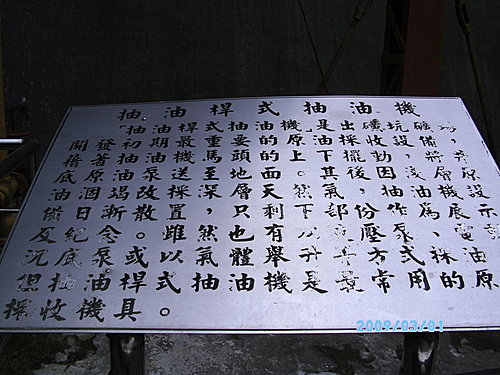 抽油桿式抽油機
「抽油桿式抽油機」是出礦坑礦場
開發初期最重要的原油採收設備，
藉著抽油機馬頭的上下擺動，將井
底原油泵送至地面。其後因淺層原
油涸竭改採深層天然氣，抽油機設
備日漸散置，只剩下部份作為展示
及紀念。雖然也有以升壓泵、電
沉底泵或以氣體舉升等方式採油
但抽油桿式抽油機是最常用的原
採收機具。
2009/03/01